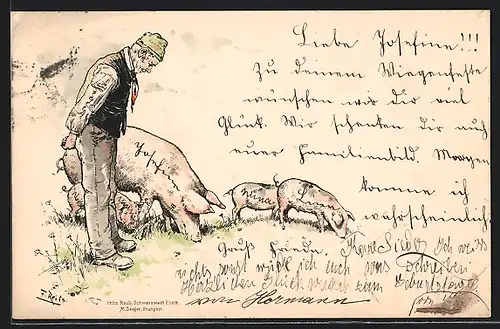 Liebe Josefine!!!
Zu deinem Wiegenfeste
wünschen wir dir viel
Glück. Wir schenken dir auch
euer Familienbild. Morgen
komme ich
wahrscheinlich
Josefine
Gruß Frieda,
ich weiß
nichts sonst will ich auch was schreiben
Herzlichen Glückwunsch zum Geburtstag
von Hermann
F. Reiß
Fritz Reiß: Schwarzwald
M. Seeger, Stuttgart.